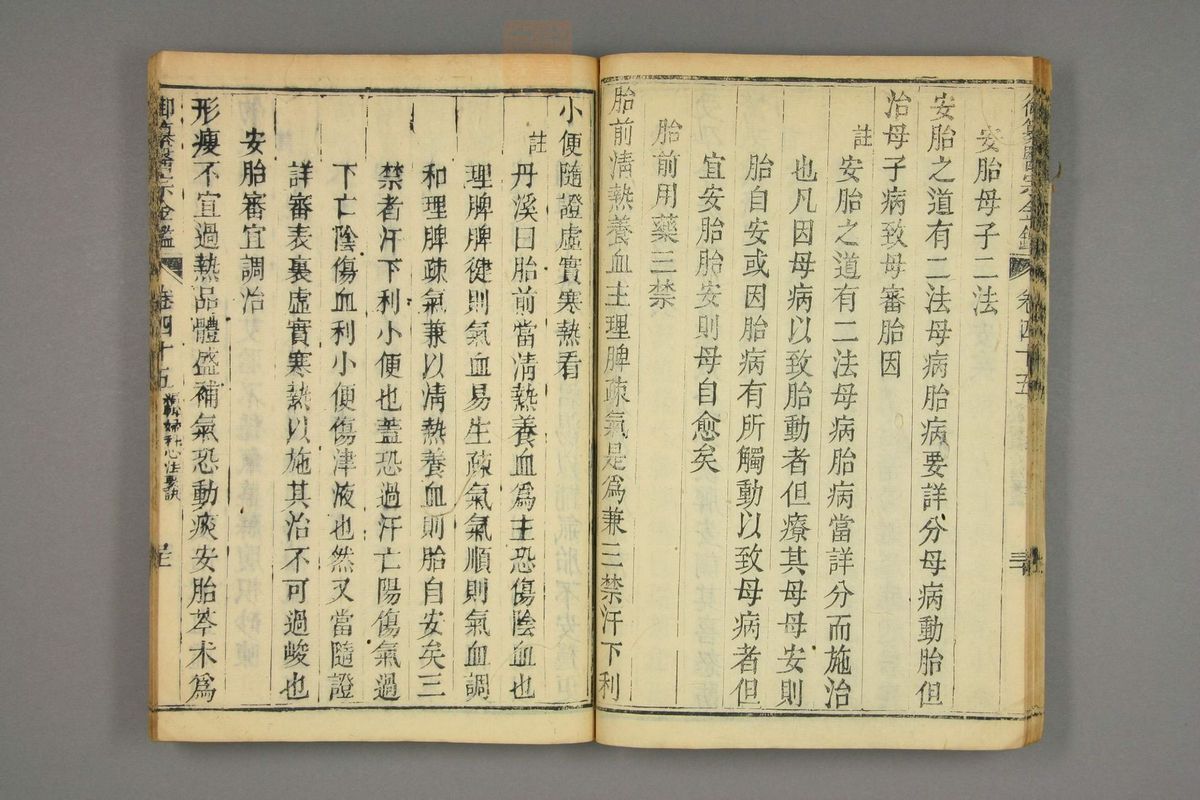 御纂醫宗金鑑 卷四十五
安胎母子二法
安胎之道有二法母病胎病要詳分母病動胎但
治母子病致母審胎因
註 安胎之道有二法母病胎病當詳分而施治
也凡因母病以致胎動者但療其母母安則
胎自安或因胎病有所觸動以致母病者但
宜安胎胎安則母自愈矣
胎前用藥三禁
胎前清熱養血主理脾疎氣是爲兼三禁汗下利
小便隨證虛實寒熱看
註 丹溪曰胎前當清熱養血爲主恐傷陰血也
理脾脾健則氣血易生疎氣氣順則氣血調
和理脾疎氣兼以清熱養血則胎自安矣三
禁者汗下利小便也蓋恐過汗亡陽傷氣過
下亡陰傷血利小便傷津液也然又當隨證
詳審表裏虛實寒熱以施其治不可過峻也
安胎審宜調治
形瘦不宜過熱品體盛補氣恐動痰安胎芩朮爲
御纂醫宗金鑑 卷四十五 婦科心法要訣